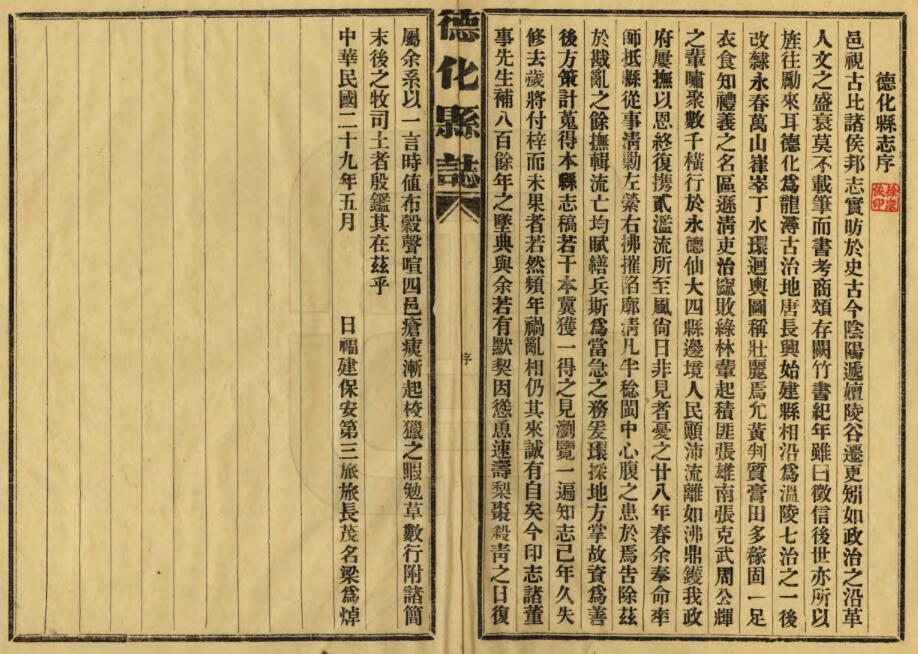 德化縣志序
邑視古比諸侯邦志實昉於史古今陰陽遞嬗陵谷遷更矧如政治之沿革
人文之盛衰莫不載筆而書考商頌存闕竹書紀年雖曰徵信後世亦所以
旌往勵來耳德化爲龍潯古治地唐長興始建縣相沿爲溫陵七治之一後
改隸永春萬山嵂崒丁水環迴輿圖稱壯麗焉允黃判質膏田多稼固一足
衣食知禮義之名區遜淸吏治窳敗綠林輩起積匪張雄南張克武周公輝
之輩嘯聚數千橫行於永德仙大四縣邊境人民顚沛流離如沸鼎鑊我政
府屢撫以恩終復携貳濫流所至風尙日非見者憂之廿八年春余奉命率
師抵縣從事淸勦左縈右拂摧陷廓淸凡半稔閩中心腹之患於焉吿除茲
於戡亂之餘撫輯流亡均賦繕兵斯爲當急之務爰環採地方掌故資爲善
後方策計蒐得本縣志稿若干本冀獲一得之見瀏覽一遍知志已年久失
修去歲將付梓而未果者若然頻年禍亂相仍其來誠有自矣今印志諸董
事先生補八百餘年之墜典與余若有默契因慫恿速壽梨棗殺靑之日復
德化縣誌
序
屬余系以一言時值布穀聲喧四邑瘡痍漸起校獵之暇勉草數行附諸簡
末後之牧司土者殷鑑其在茲乎
中華民國二十九年五月 日福建保安第三旅旅長茂名梁爲焯